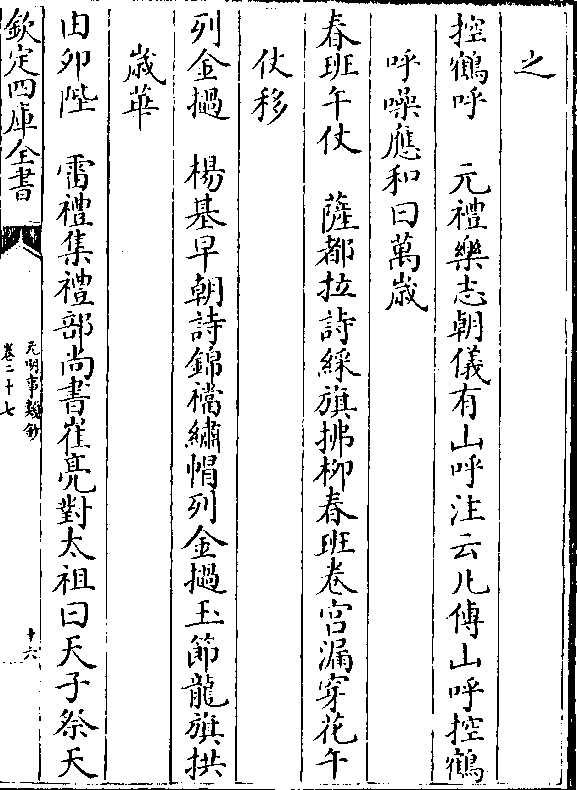 之
控鶴呼　元禮樂志朝儀有山呼注云凡傳山呼控鶴
呼噪應和曰萬歲
春班午仗　薩都拉詩綵旗拂柳春班卷宮漏穿花午
仗移
列金撾　楊基早朝詩錦襠繡帽列金撾玉節龍旗拱
歲華
由夘陛　雷禮集禮部尚書崔亮對太祖曰天子祭天
欽定四庫全書
元明事類鈔
卷二十七
十六